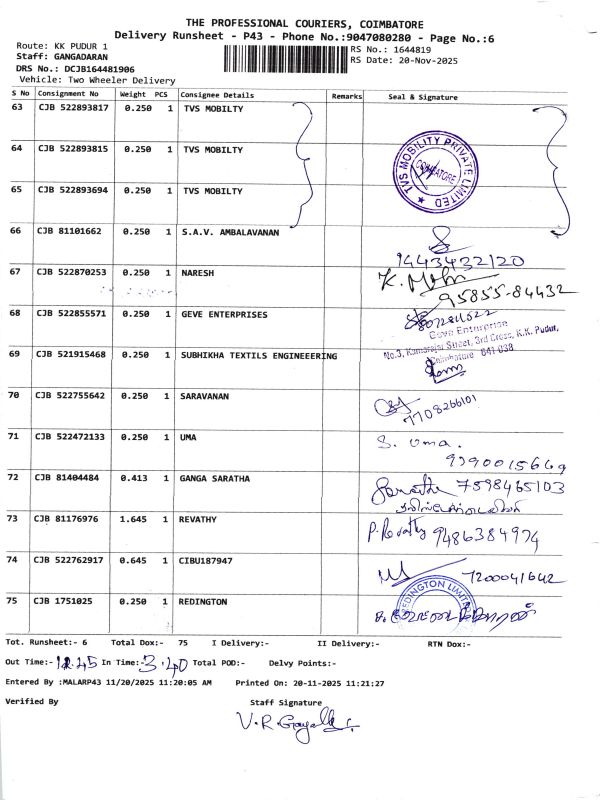 THE PROFESSIONAL COURIERS, COIMBATORE
Delivery Runsheet - P43 - Phone No.:9047080280 - Page No.:6
Route: KK PUDUR 1
RS No.: 1644819
Staff: GANGADARAN
RS Date: 20-Nov-2025
DRS No.: DCJB164481906
Vehicle: Two Wheeler Delivery
S No Consignment No Weight PCS Consignee Details Remarks Seal & Signature
63 CJB 522893817 0.250 1 TVS MOBILTY
64 CJB 522893815 0.250 1 TVS MOBILTY
TVS MOBILITY PRIVATE LIMITED
COIMBATORE
65 CJB 522893694 0.250 1 TVS MOBILTY
66 CJB 81101662 0.250 1 S.A.V. AMBALAVANAN
9443432120
67 CJB 522870253 0.250 1 NARESH
95855-84432
68 CJB 522855571 0.250 1 GEVE ENTERPRISES
Geve Enterprise
No.3, Kamarajar Street, 3rd Cross, K.K. Pudur,
Coimbatore 641 038
69 CJB 521915468 0.250 1 SUBHIKHA TEXTILS ENGINEEERING
70 CJB 522755642 0.250 1 SARAVANAN
7708266101
71 CJB 522472133 0.250 1 UMA
S. Uma.
9790015669
72 CJB 81404484 0.413 1 GANGA SARATHA
Saratha 7598465103
73 CJB 81176976 1.645 1 REVATHY
P. Revathy 9486384974
74 CJB 522762917 0.645 1 CIBU187947
7200041642
75 CJB 1751025 0.250 1 REDINGTON
REDINGTON LIMITED
Tot. Runsheet:- 6 Total Dox:- 75 I Delivery:- II Delivery:- RTN Dox:-
Out Time:- 12.45 In Time:- 3.40 Total POD:- Delvy Points:-
Entered By :MALARP43 11/20/2025 11:20:05 AM Printed On: 20-11-2025 11:21:27
Verified By Staff Signature